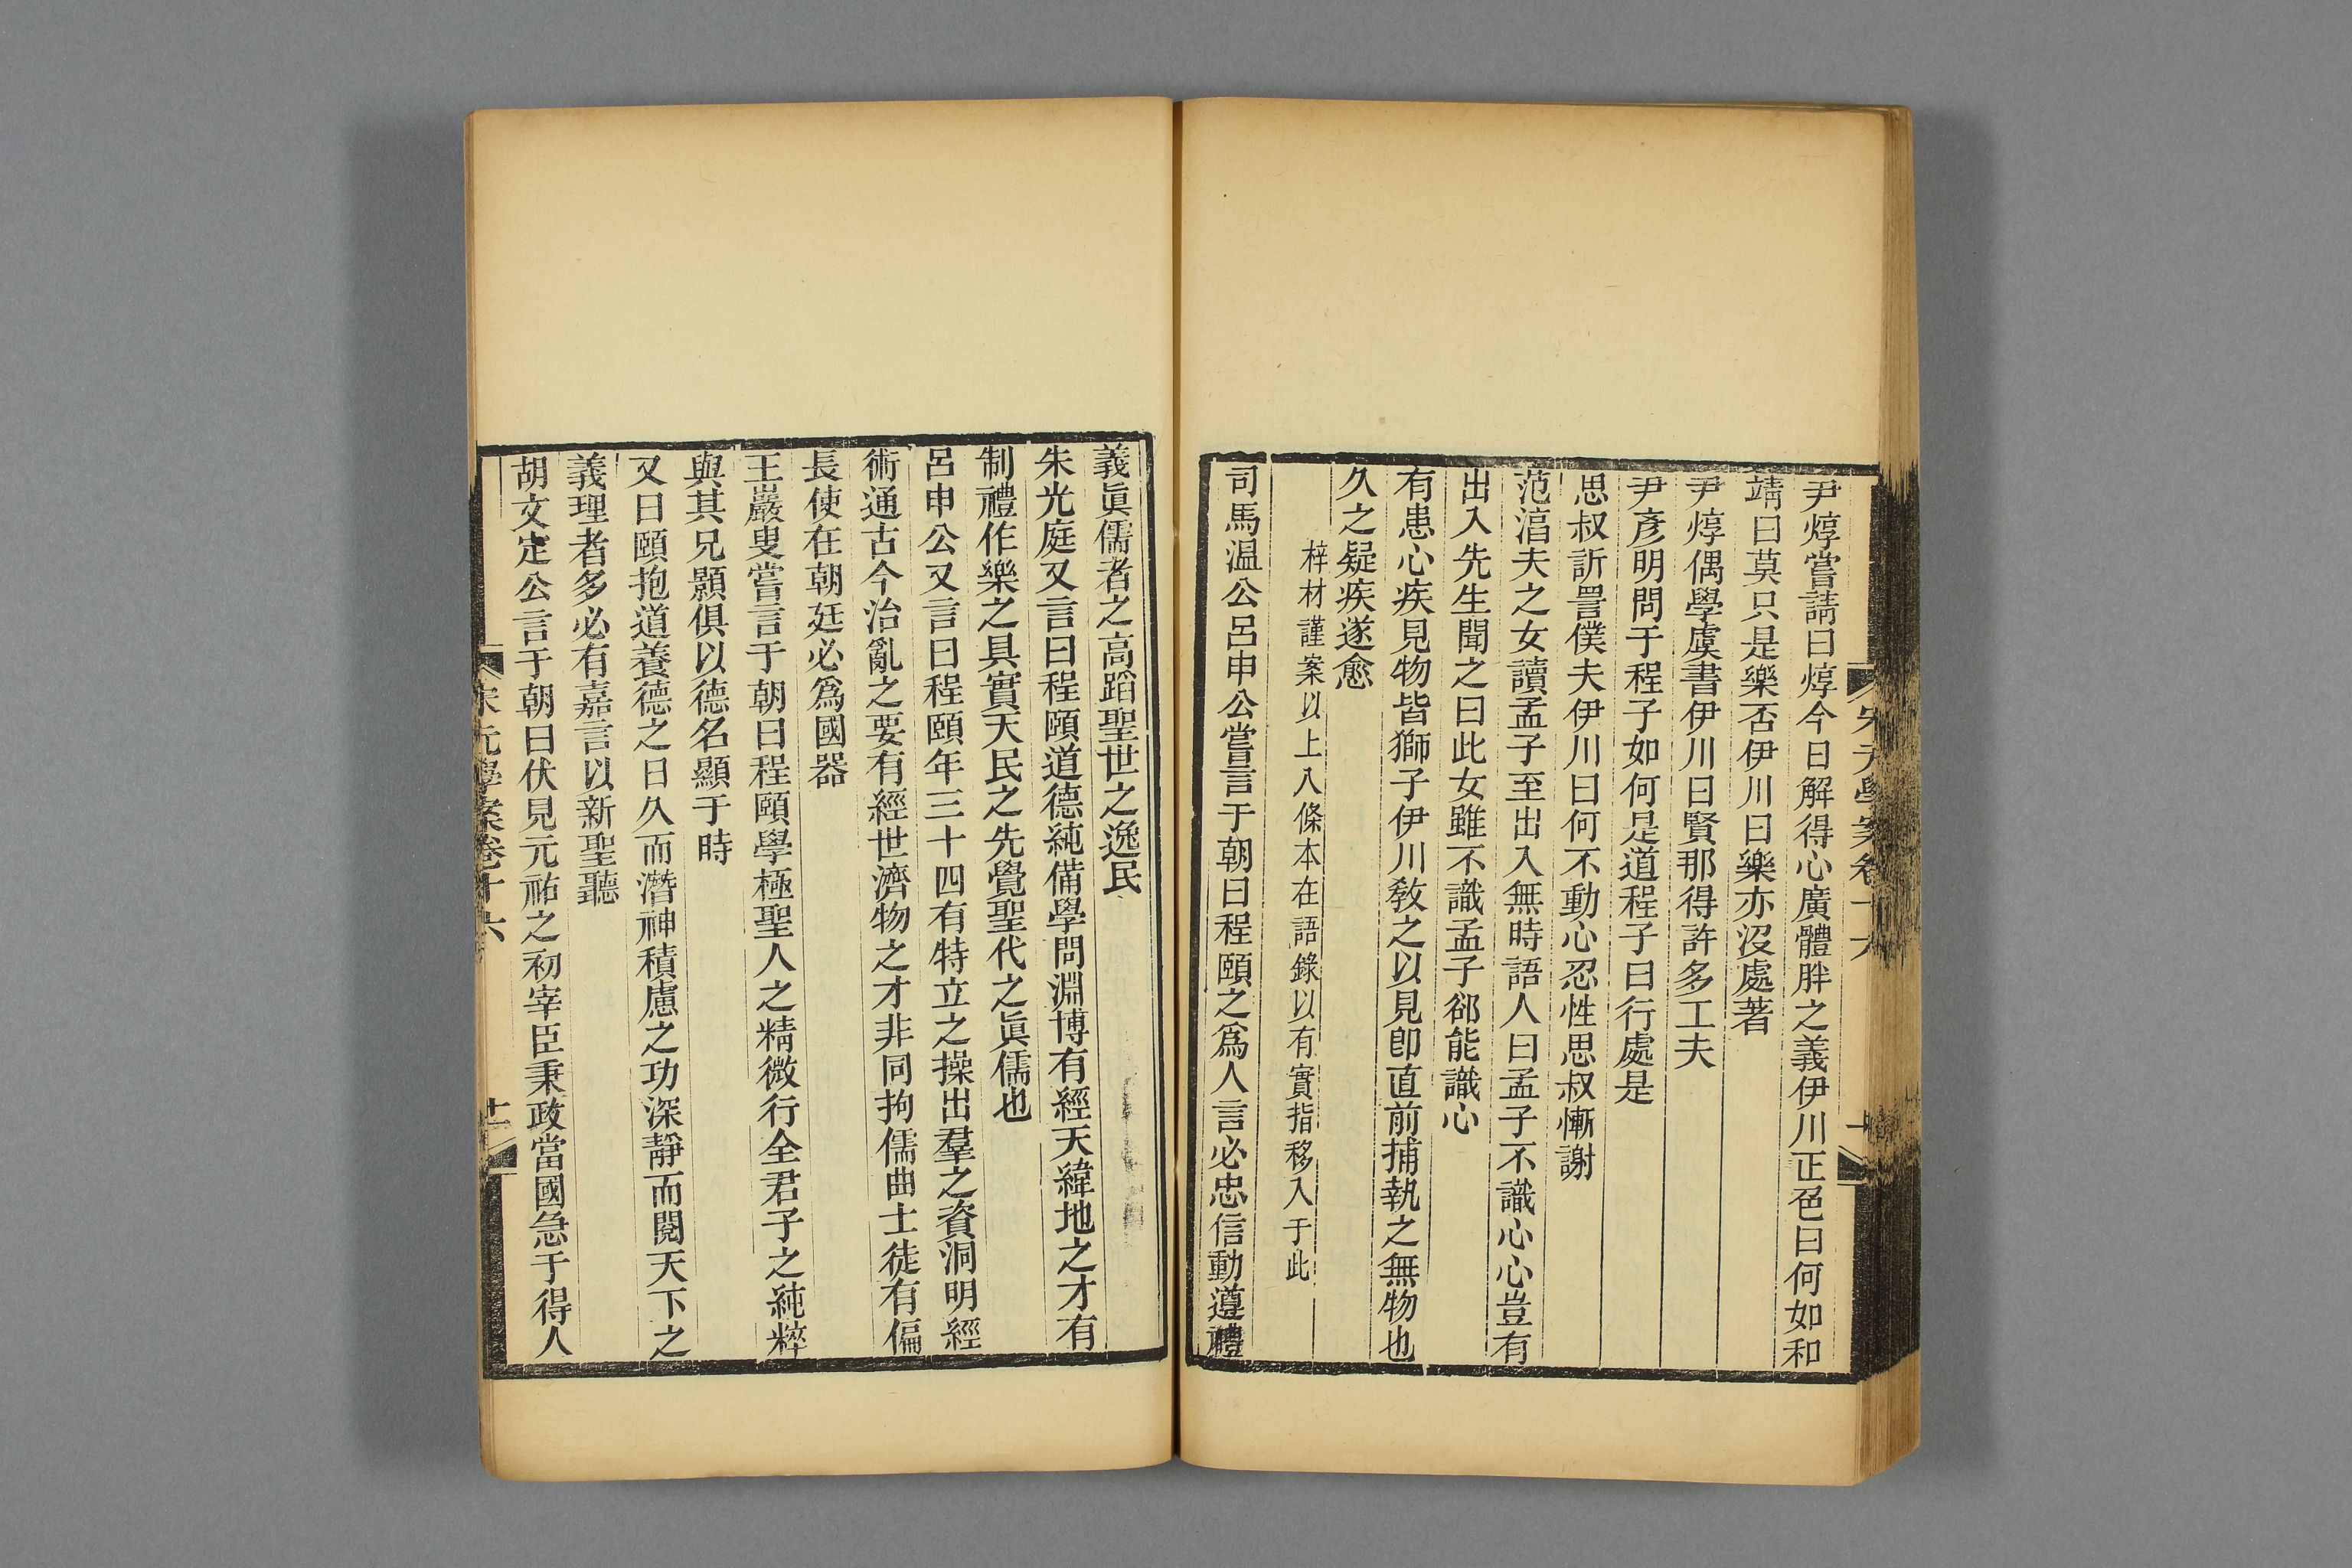 尹焞嘗請曰焞今日解得心廣體胖之義伊川正色曰何如和
靖曰莫只是樂否伊川曰樂亦沒處著
尹焞偶學虞書伊川曰賢那得許多工夫
尹彥明問于程子如何是道程子曰行處是
思叔訢詈僕夫伊川曰何不動心忍性思叔慚謝
范淊夫之女讀孟子至出入無時語人曰孟子不識心心豈有
出入先生聞之曰此女雖不識孟子郤能識心
有患心疾見物皆獅子伊川敎之以見卽直前捕執之無物也
久之疑疾遂愈
梓材謹案以上八條本在語錄以有實指移入于此
司馬温公呂申公嘗言于朝曰程頤之爲人言必忠信動遵禮
義眞儒者之高蹈聖世之逸民
朱光庭又言曰程頤道德純備學問淵博有經天緯地之才有
制禮作樂之具實天民之先覺聖代之眞儒也
呂申公又言曰程頤年三十四有特立之操出羣之資洞明經
術通古今治亂之要有經世濟物之才非同拘儒曲士徒有偏
長使在朝廷必爲國器
王巖叟嘗言于朝曰程頤學極聖人之精微行全君子之純粹
與其兄顥俱以德名顯于時
又曰頤抱道養德之日久而潛神積慮之功深靜而閱天下之
義理者多必有嘉言以新聖聽
胡文定公言于朝曰伏見元祐之初宰臣秉政當國急于得人
宋元學案卷十六